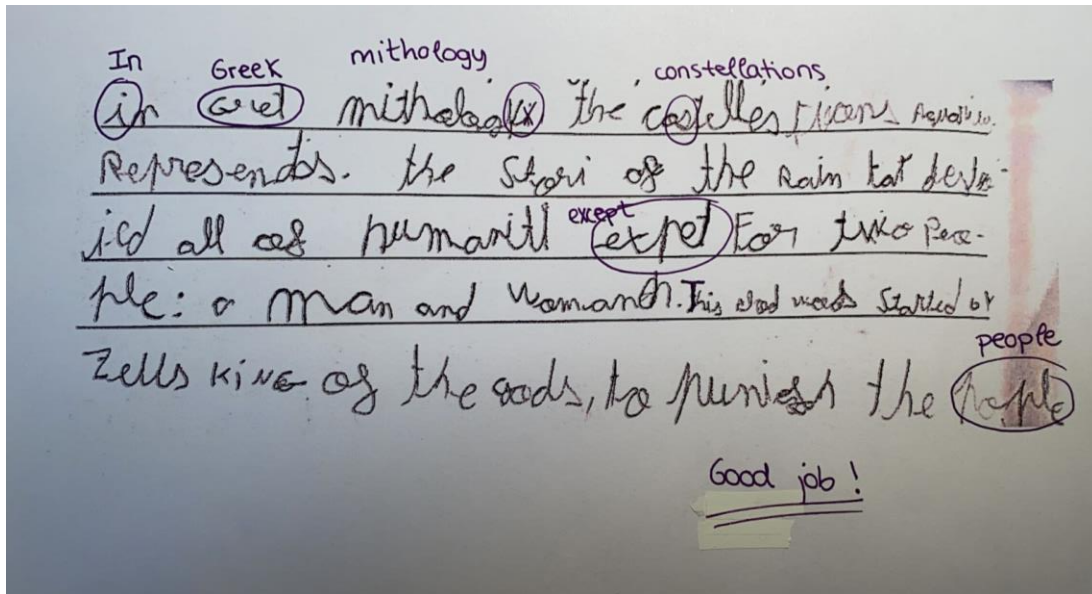 In Greek mithology constellations
in Gret mitholog the Aquarius.
Represends. the Stori of the Rain tat destr-
i.cd all of humanitl except expet For two Peo-
ple: a man and womanh. This flod was Started by
people
Zeus KiNG of the gods, to punish the pople
Good job!